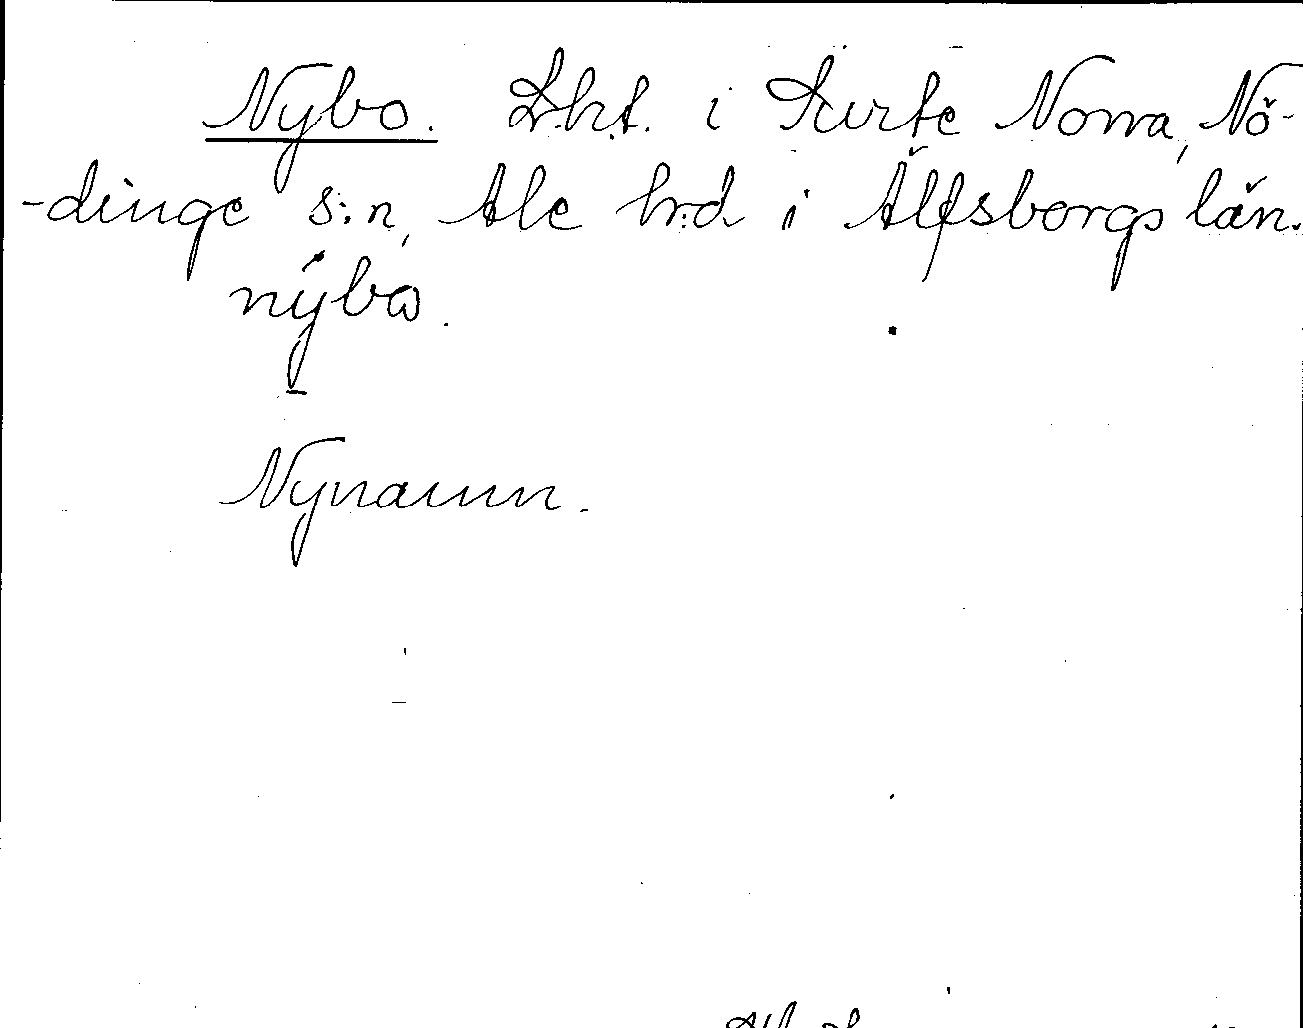 Nybo. Lht. i Surte Norra, Nö-
-dinge s:n, Ale h:d i Älfsborgs län.
nýbo.
Nynamn.